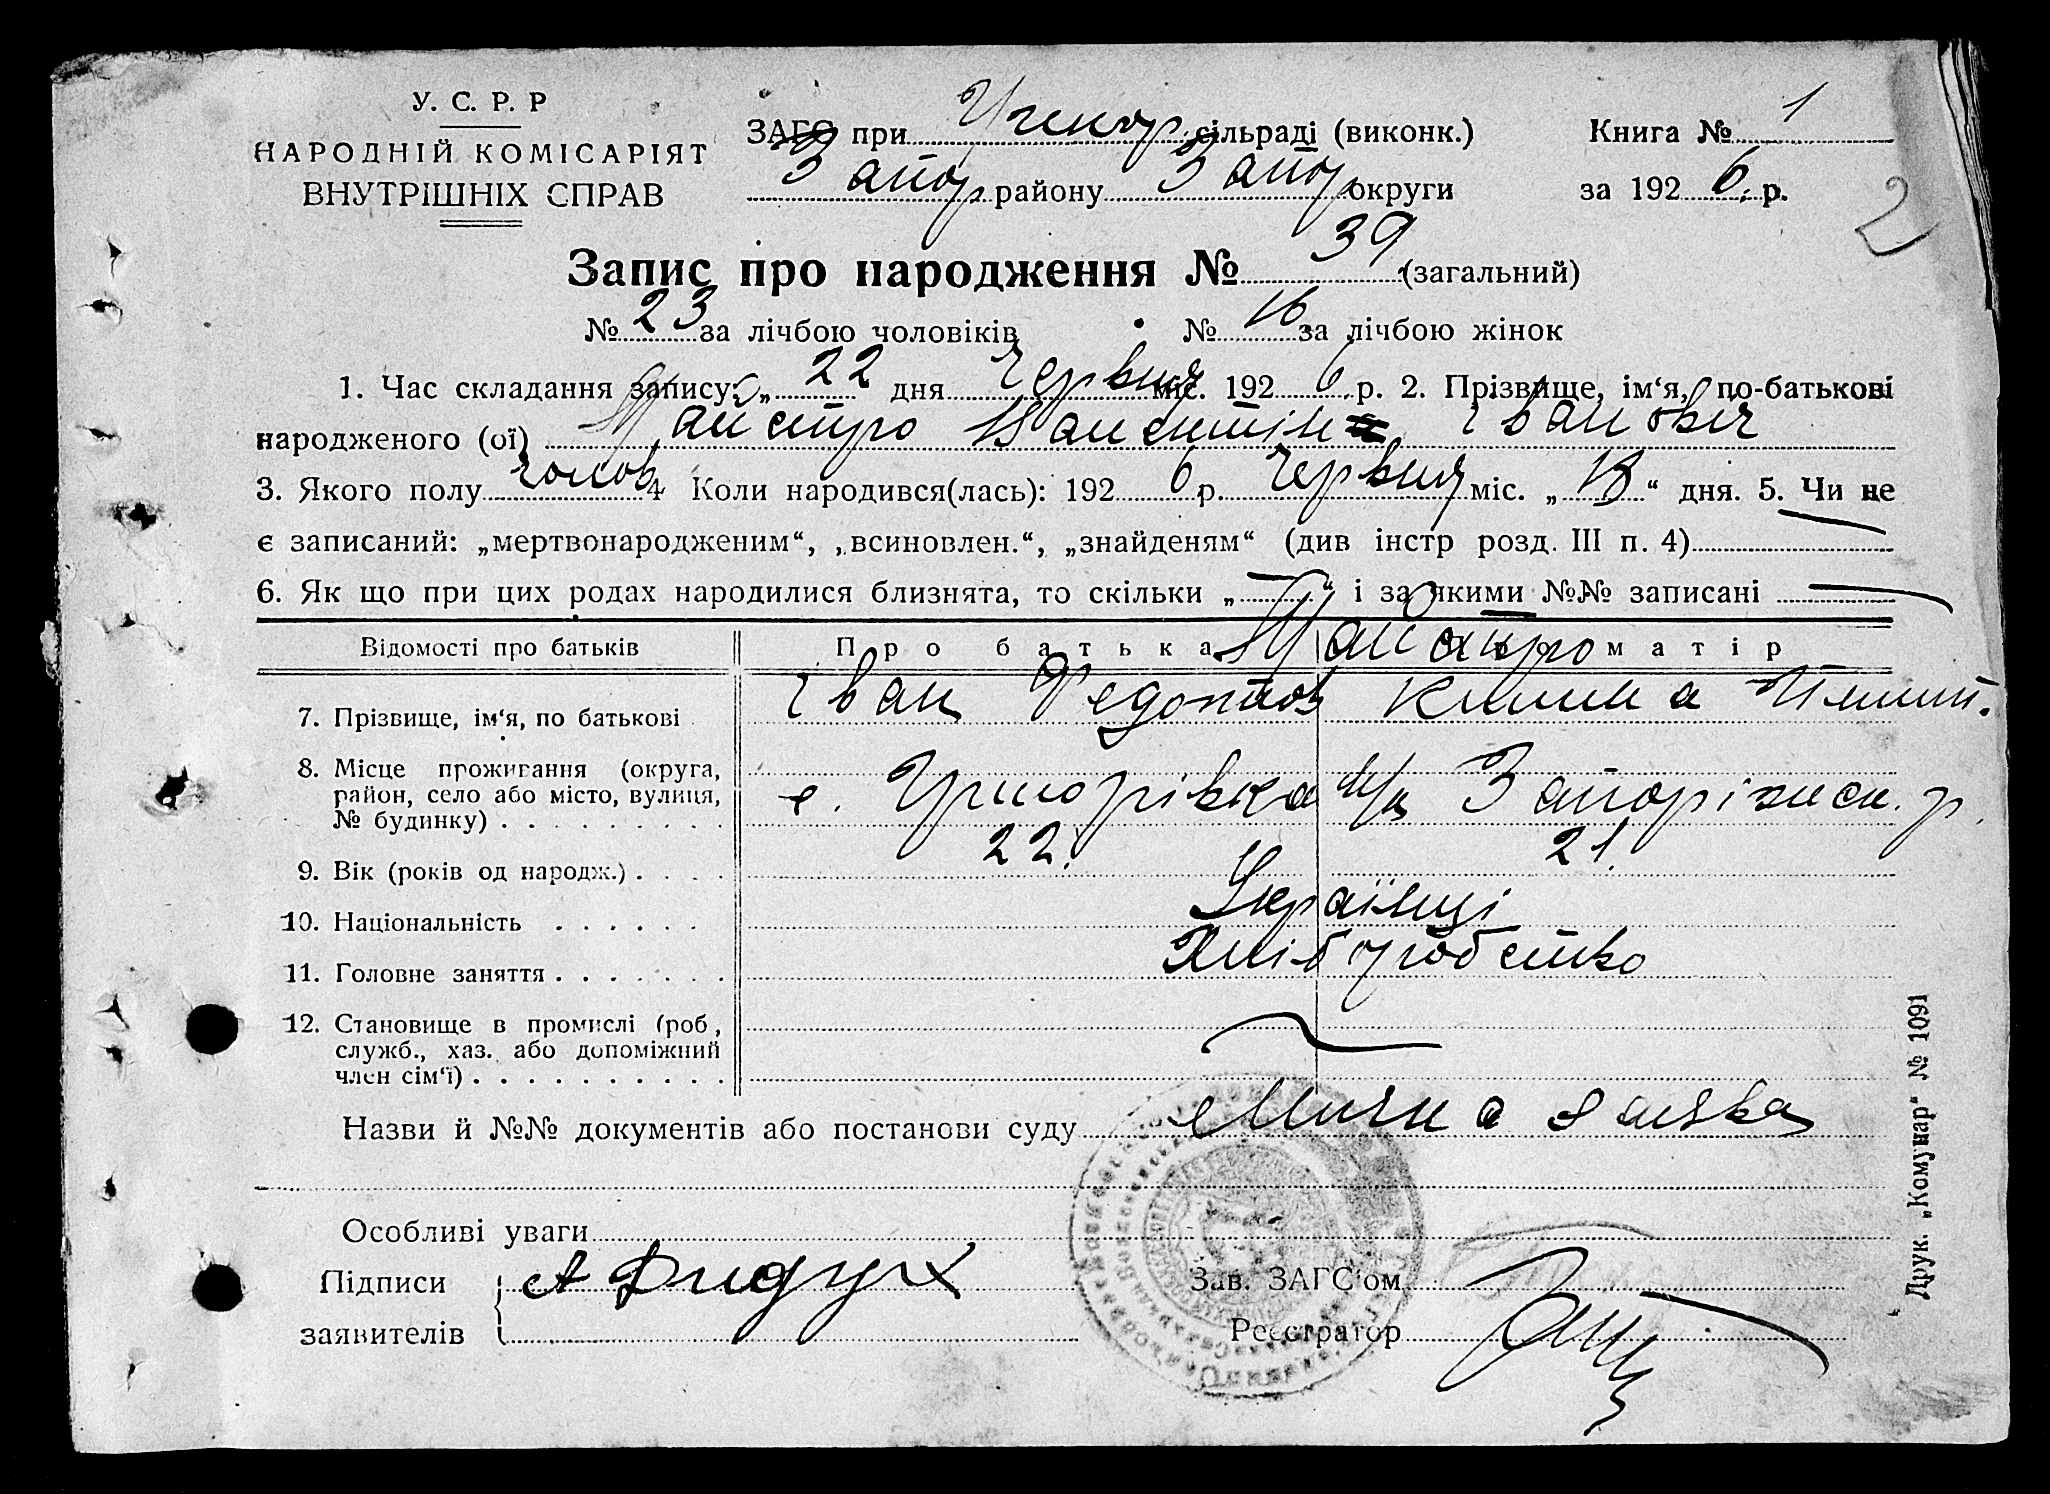 У. С. Р. Р
НАРОДНІЙ КОМІСАРІЯТ
ВНУТРІШНІХ СПРАВ
ЗАГС при сільраді (виконк.)
Запор району Запор округи
Книга № 1
за 192 6. р.
2
Запис про народження № 39 (загальний)
№ 23 за лічбою чоловіків № 16 за лічбою жінок
1. Час складання запису: „ 22 дня Червня міс. 192 6 р. 2. Прізвище, ім‘я, по-батькові
народженого (ої) Майстро Валентін Іванович
3. Якого полу Чолов 4 Коли народився(лась): 192 6 р. Червня міс. „ “ дня. 5. Чи не
є записаний: „мертвонародженим“, „всиновлен.“, „знайденям“ (див інстр розд. III п. 4)
6. Як що при цих родах народилися близнята, то скільки „ “ і за якими №№ записані
Відомості про батьків Про батька Майстро матір
7. Прізвище, ім‘я, по батькові Іван Федотов
8. Місце проживання (округа,
район, село або місто, вулиця,
№ будинку) с. Григорівка Запоріжск. р.
9. Вік (років од народж.) 22. 21.
10. Національність Українці
11. Головне заняття Хліборобство
12. Становище в промислі (роб,
служб., хаз. або допоміжний
член сім‘ї)
Назви й №№ документів або постанови суду Лична заява
Особливі уваги
Підписи А Дидух
заявителів
Зав. ЗАГС‘ом
Реєстратор
Друк. „Комунар“ № 1091